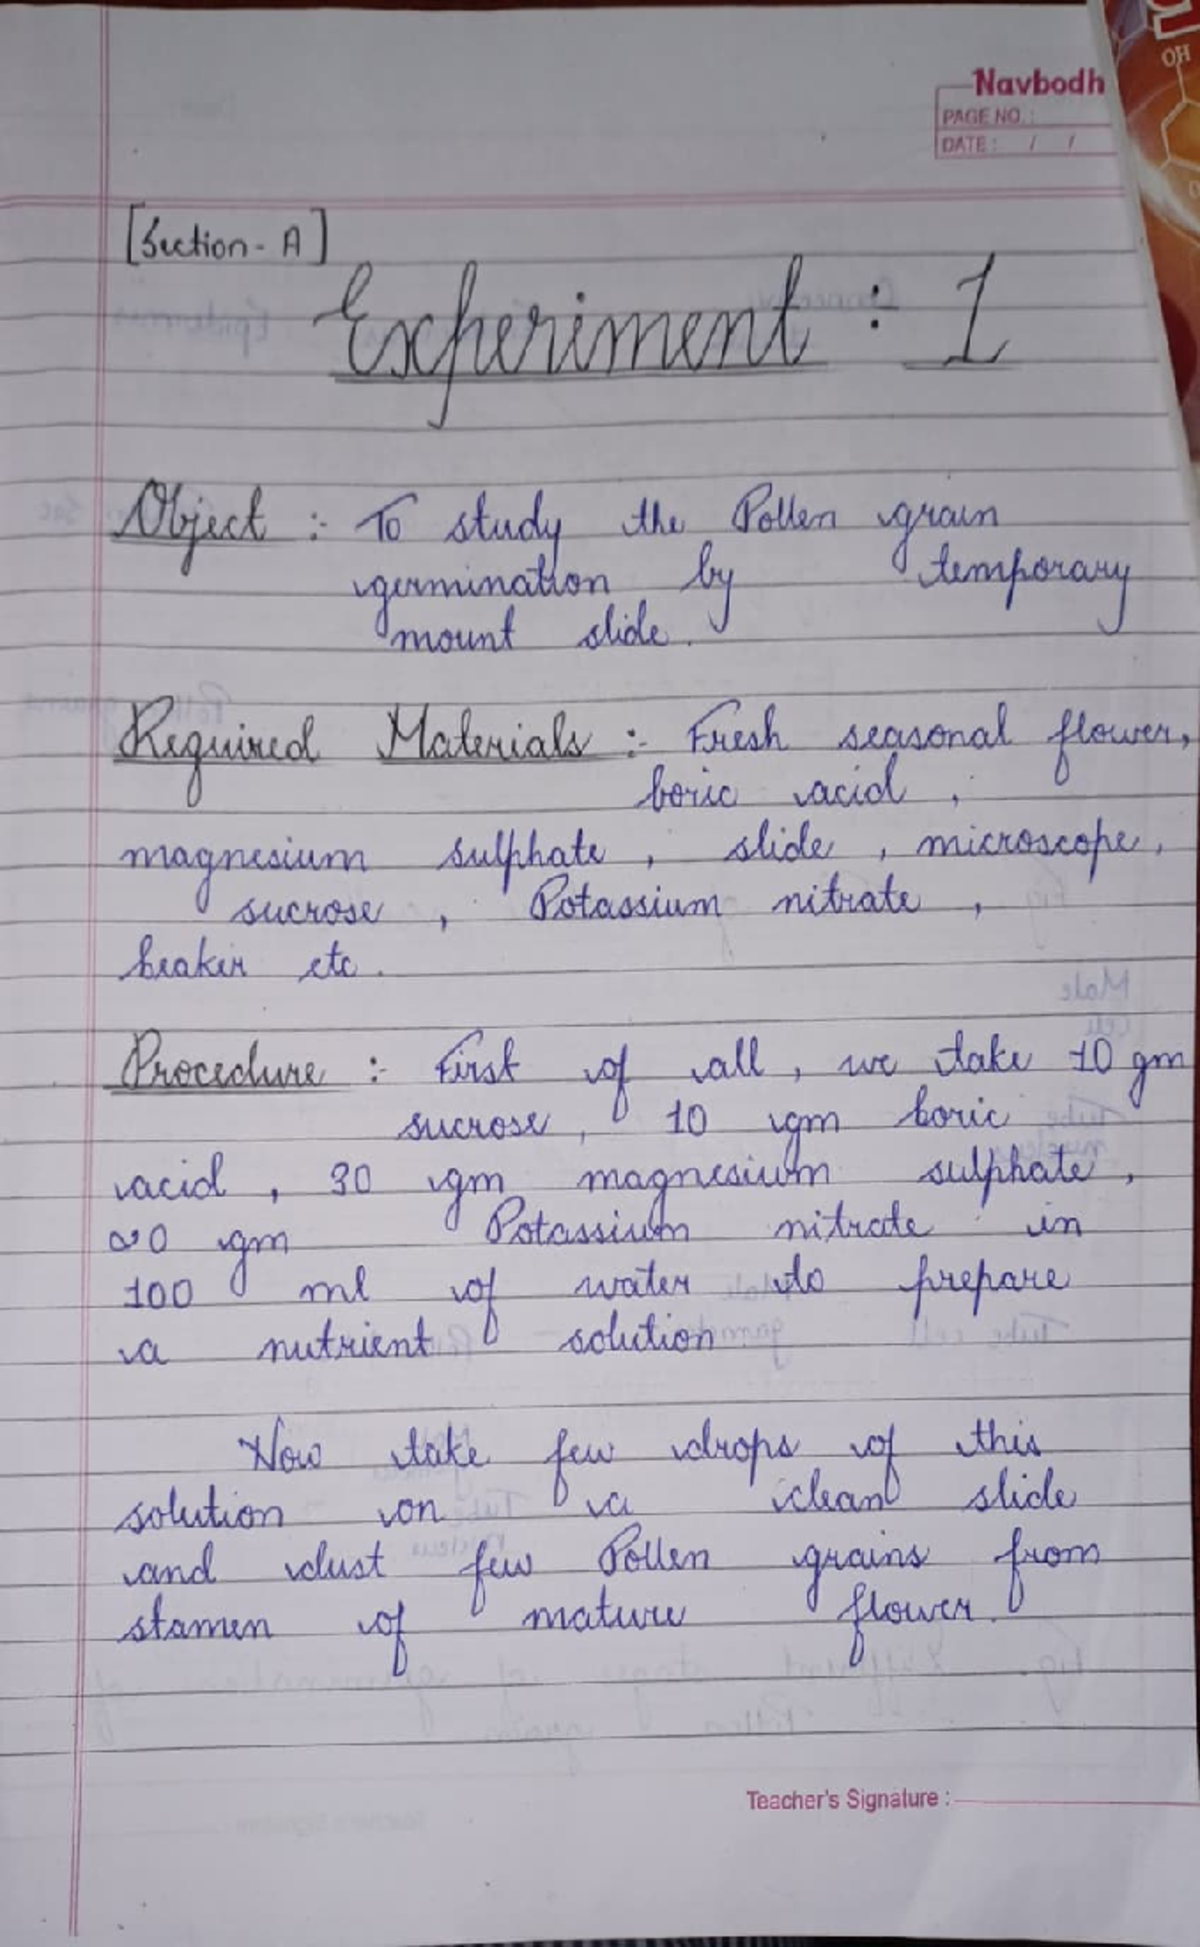 Navbodh
PAGE NO. :
DATE : / /
OH
[Section - A]
Experiment : 1
Object :- To study the Pollen grain
germination by temporary
mount slide.
Required Materials :- Fresh seasonal flower,
boric acid ,
magnesium sulphate , slide , microscope ,
sucrose , Potassium nitrate ,
beaker etc .
Procedure :- First of all , we take 10 gm
sucrose , 10 gm boric
acid , 30 gm magnesium sulphate ,
20 gm Potassium nitrate in
100 ml of water to prepare
a nutrient solution
Now take few drops of this
solution on a clean slide
and dust few Pollen grains from
stamen of mature flower.
Teacher's Signature :